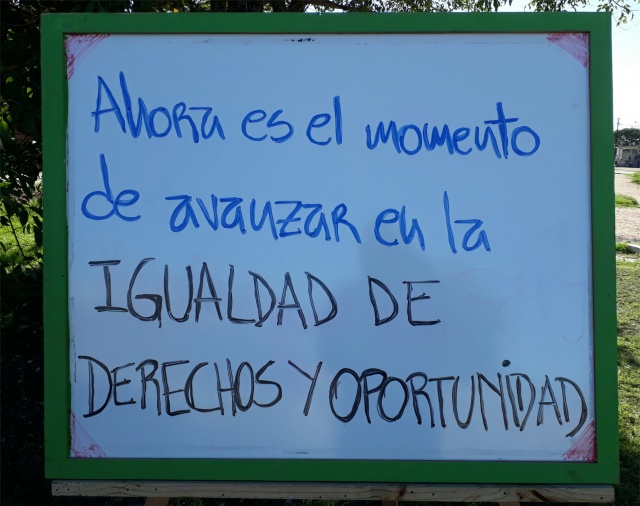 Ahora es el momento
de avanzar en la
IGUALDAD DE
DERECHOS Y OPORTUNIDAD